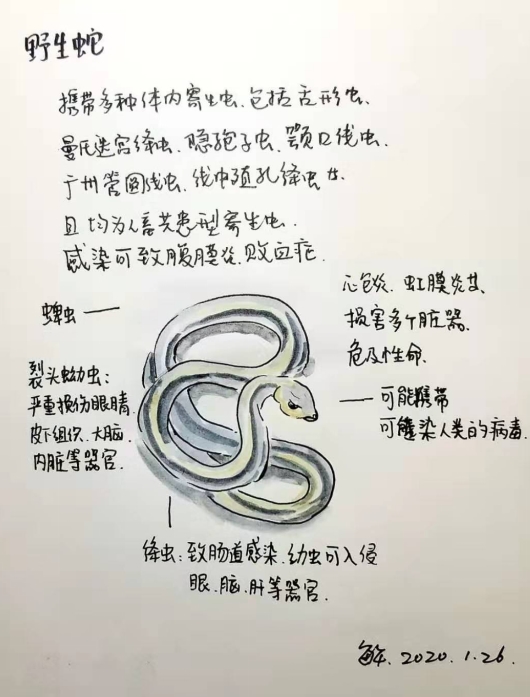 野生蛇
携带多种体内寄生虫、包括舌形虫、
曼氏迭宫绦虫、隐孢子虫、颚口线虫、
广州管圆线虫、线中殖孔绦虫等
且均为人畜共患型寄生虫.
感染可致腹膜炎、败血症、
心包炎、虹膜炎等、
损害多个脏器、
危及性命.
蜱虫
裂头蚴幼虫：
严重损伤眼睛、
皮下组织、大脑、
内脏等器官.
可能携带
可感染人类的病毒
绦虫：致肠道感染、幼虫可入侵
眼、脑、肝等器官.
2020.1.26.